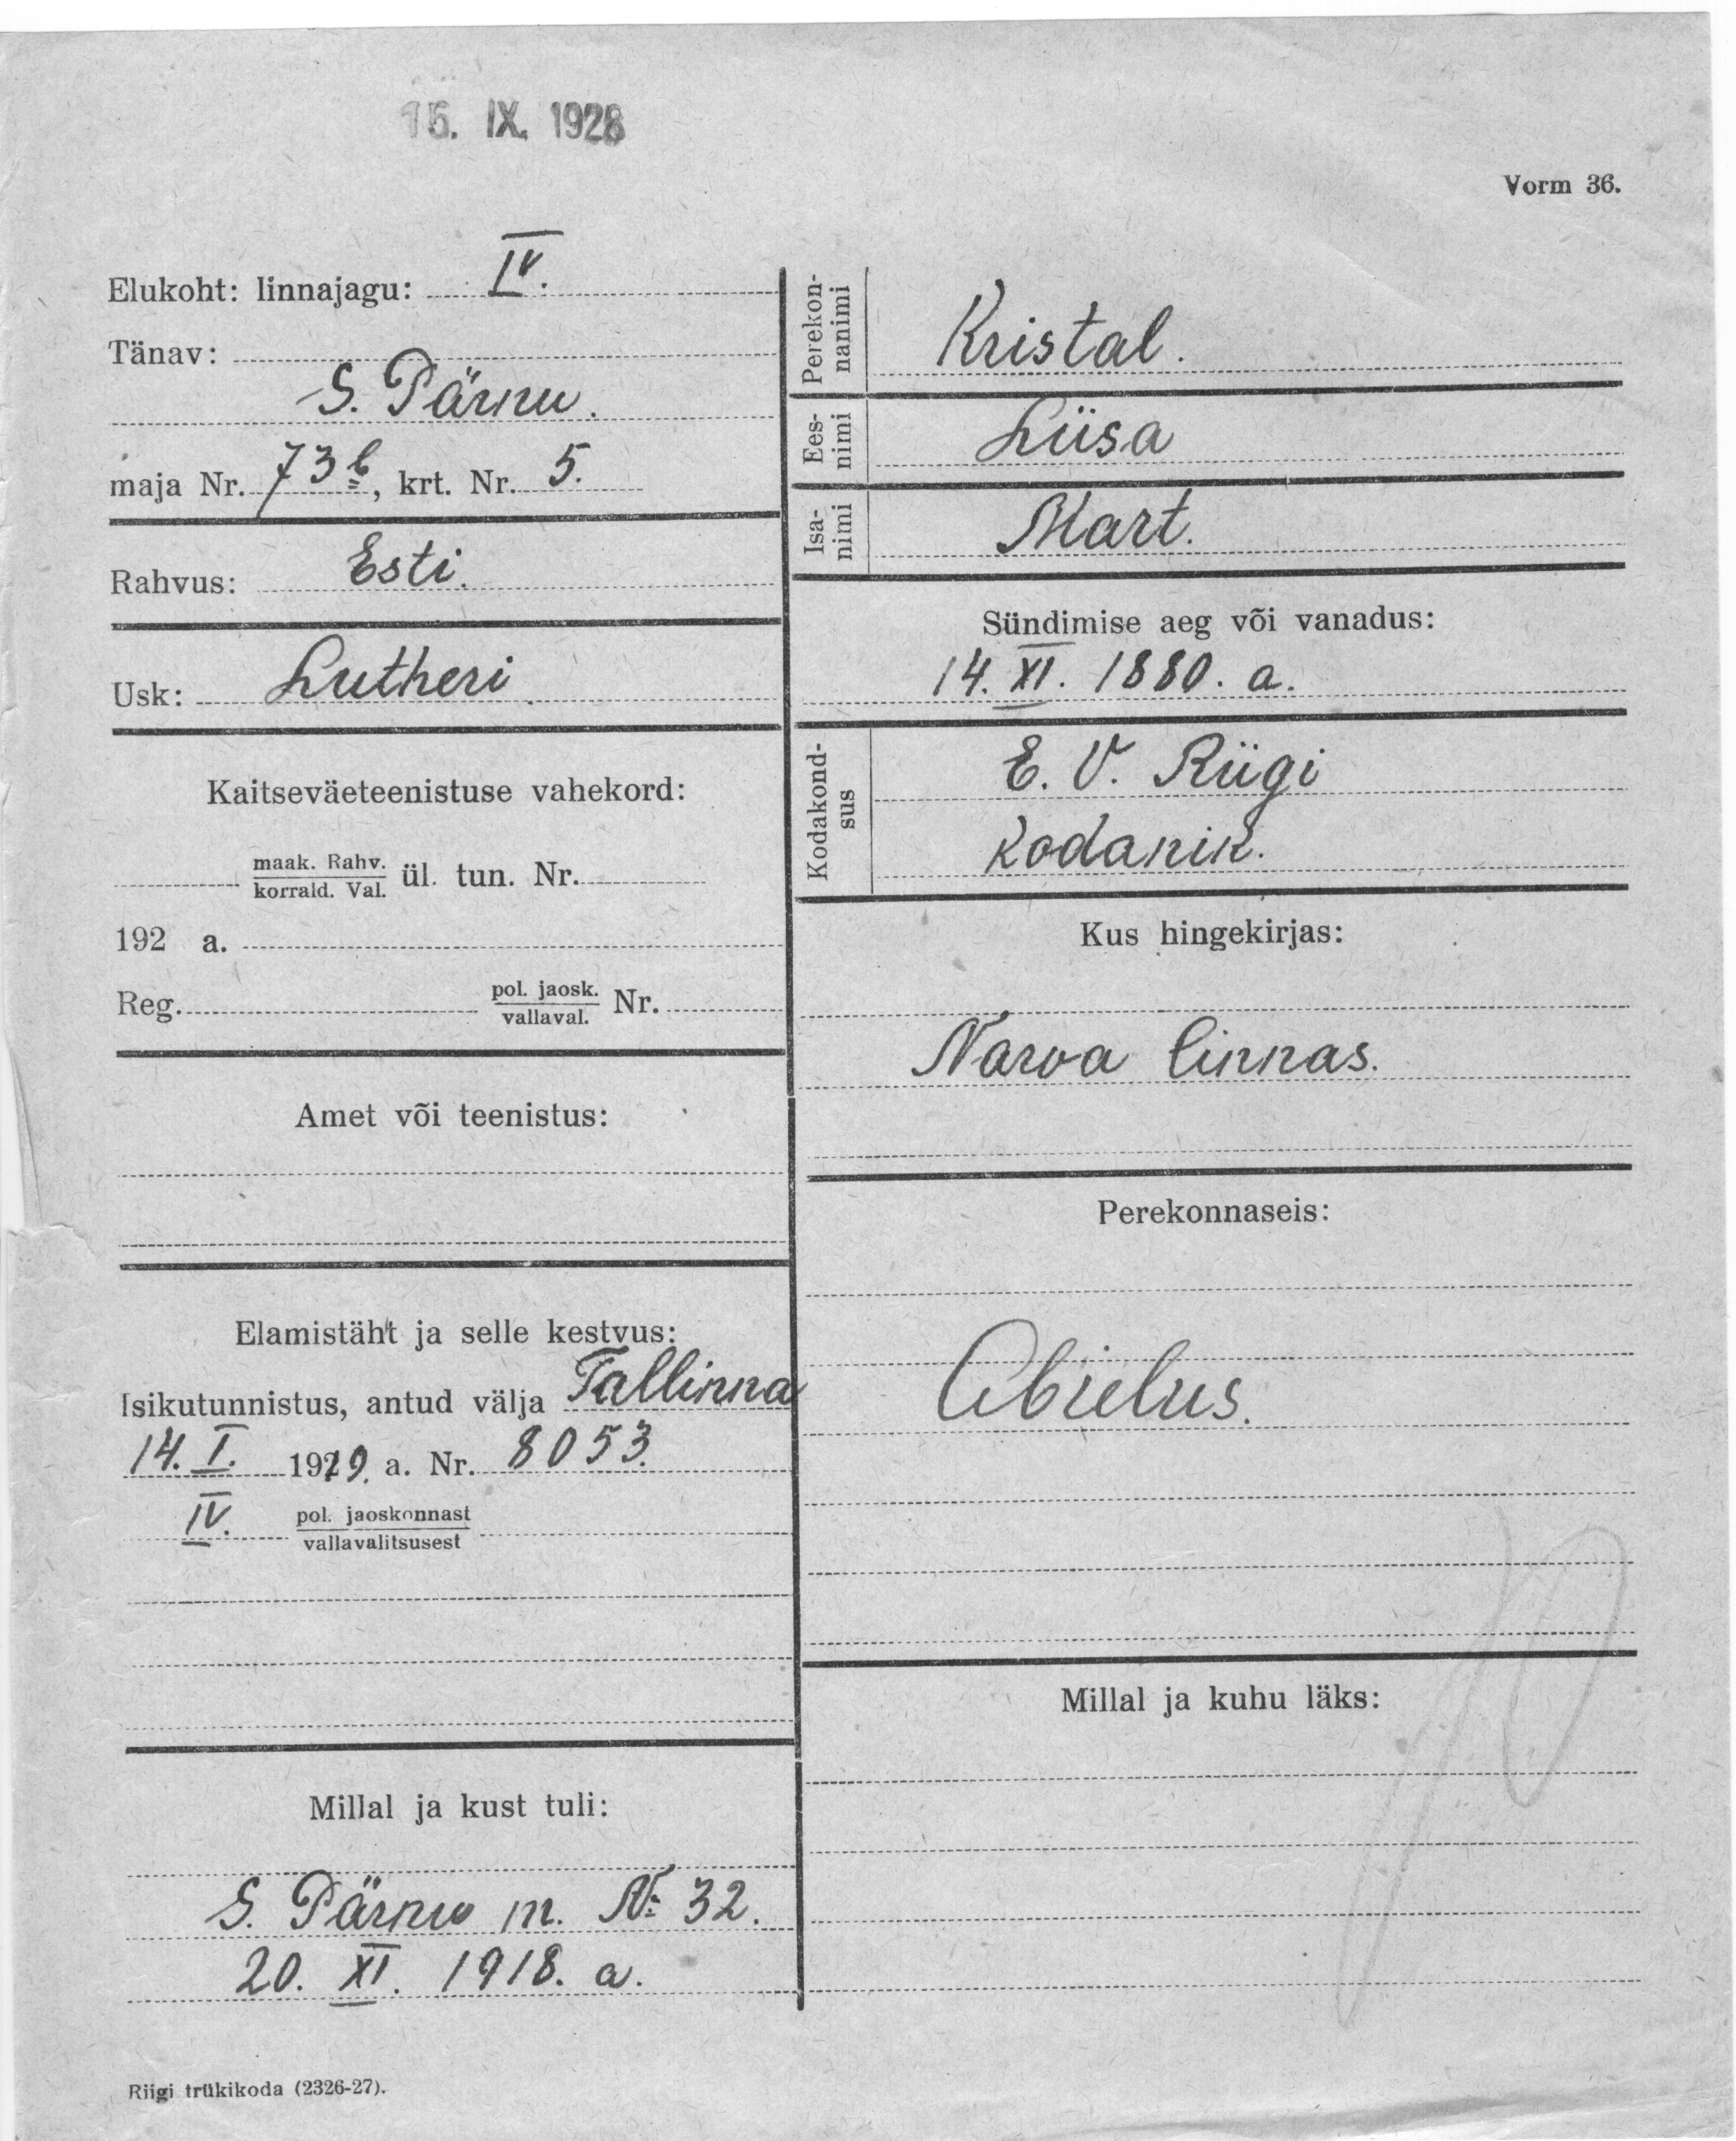 15. IX. 1928
Vorm 36.
Elukoht: linnajagu: IV.
Tänav:
S. Pärnu.
maja Nr. 73b, krt. Nr. 5.
Rahvus: Esti.
Usk: Lutheri
Kaitseväeteenistuse vahekord:
maak. Rahv.
korrald. Val. ül. tun. Nr.
192 a.
Reg. pol. jaosk. Nr.
vallaval.
Amet või teenistus:
Elamistäht ja selle kestvus:
Isikutunnistus, antud välja Tallinna
14. I. 1919. a. Nr. 8053.
IV. pol. jaoskonnast
vallavalitsusest
Millal ja kust tuli:
S. Pärnu m. № 32.
20. XI. 1918. a.
Riigi trükikoda (2326-27).
Perekon-
nanimi
Kristal.
Ees-
nimi
Liisa
Isa-
nimi
Mart.
Sündimise aeg või vanadus:
14. XI. 1880. a.
Kodakond-
sus
E. V. Riigi
kodanik.
Kus hingekirjas:
Narva linnas.
Perekonnaseis:
Abielus.
Millal ja kuhu läks: